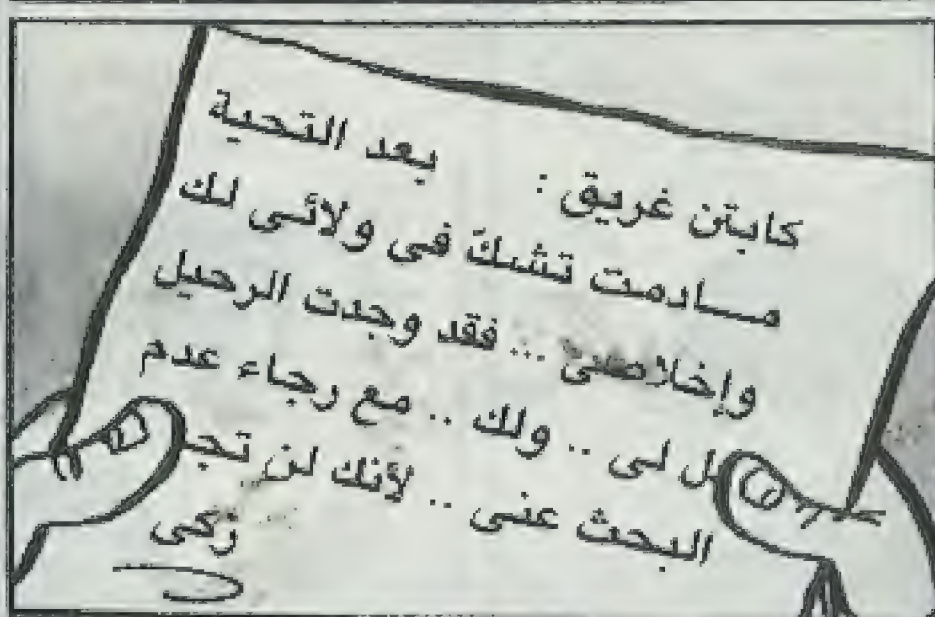 كابتن غريق : بعد التحية
مادمت تشك فى ولائى لك
وإخلاصى ... فقد وجدت الرحيل
ـل لى .. ولك .. مع رجاء عدم
البحث عنى .. لأنك لن تجـ
زكى